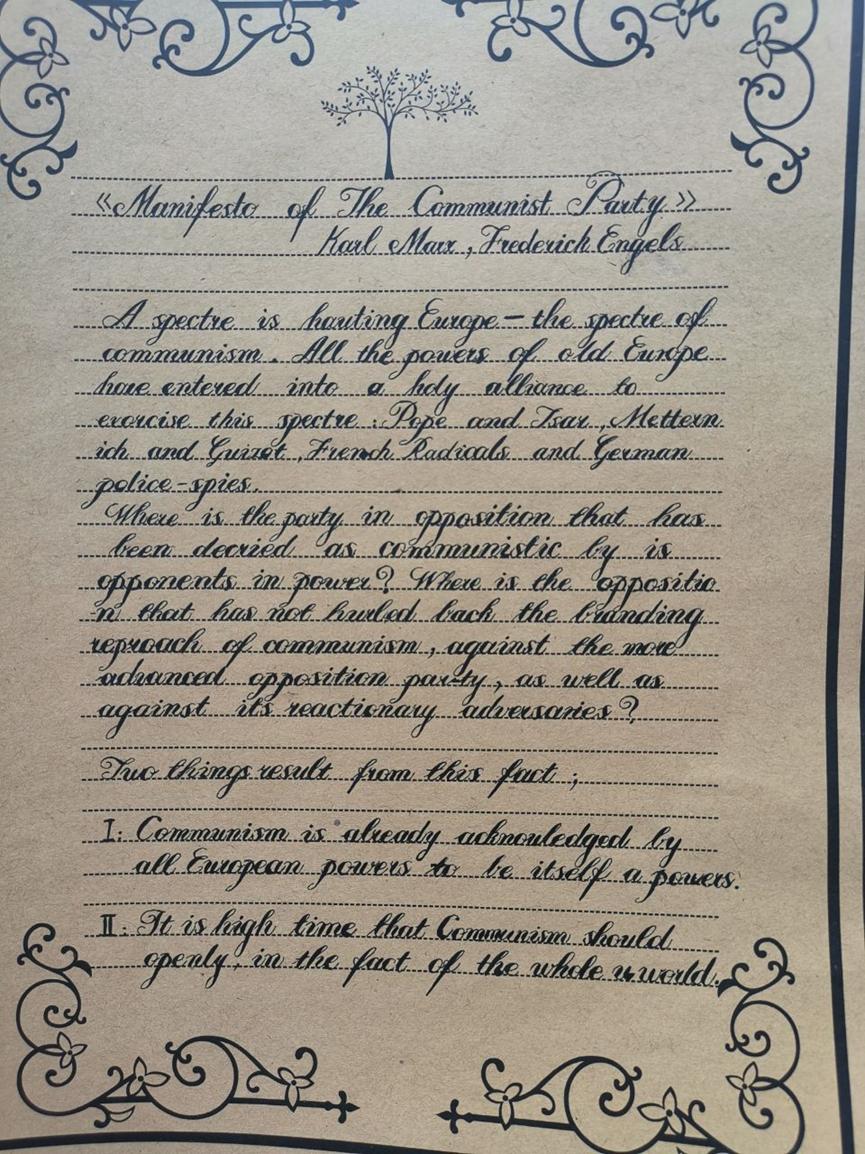 《Manifesto of The Communist Party》
Karl Marx, Frederich Engels
A spectre is hauting Europe — the spectre of
communism. All the powers of old Europe
have entered into a holy alliance to
exorcise this spectre: Pope and Tsar, Mettern
ich and Guizot, French Radicals and German
police-spies.
Where is the party in opposition that has
been decried as communistic by is
opponents in power? Where is the oppositio
n that has not hurled back the branding
reproach of communism, against the more
advanced opposition party, as well as
against its reactionary adversaries?
Two things result from this fact;
I: Communism is already acknouledged by
all European powers to be itself a powers.
II: It is high time that Communism should
openly, in the fact of the whole world.